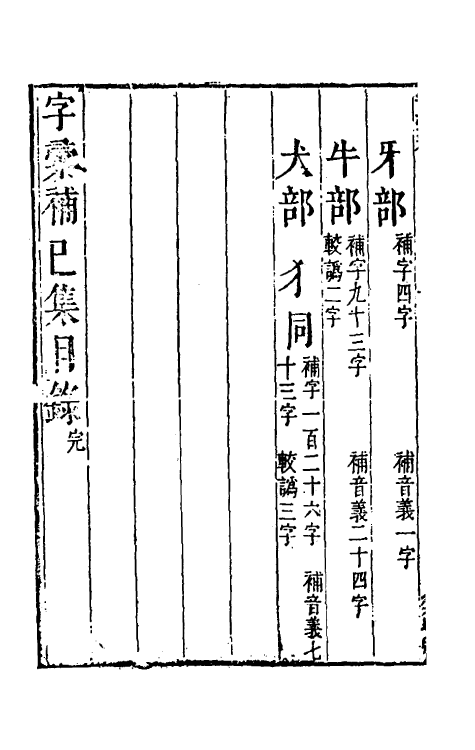 牙部 補字四字 補音義一字
牛部 補字九十三字 補音義二十四字
較譌二字
犬部 犭同 補字一百二十六字 補音義七
十三字 較譌三字
字彙補巳集目錄完